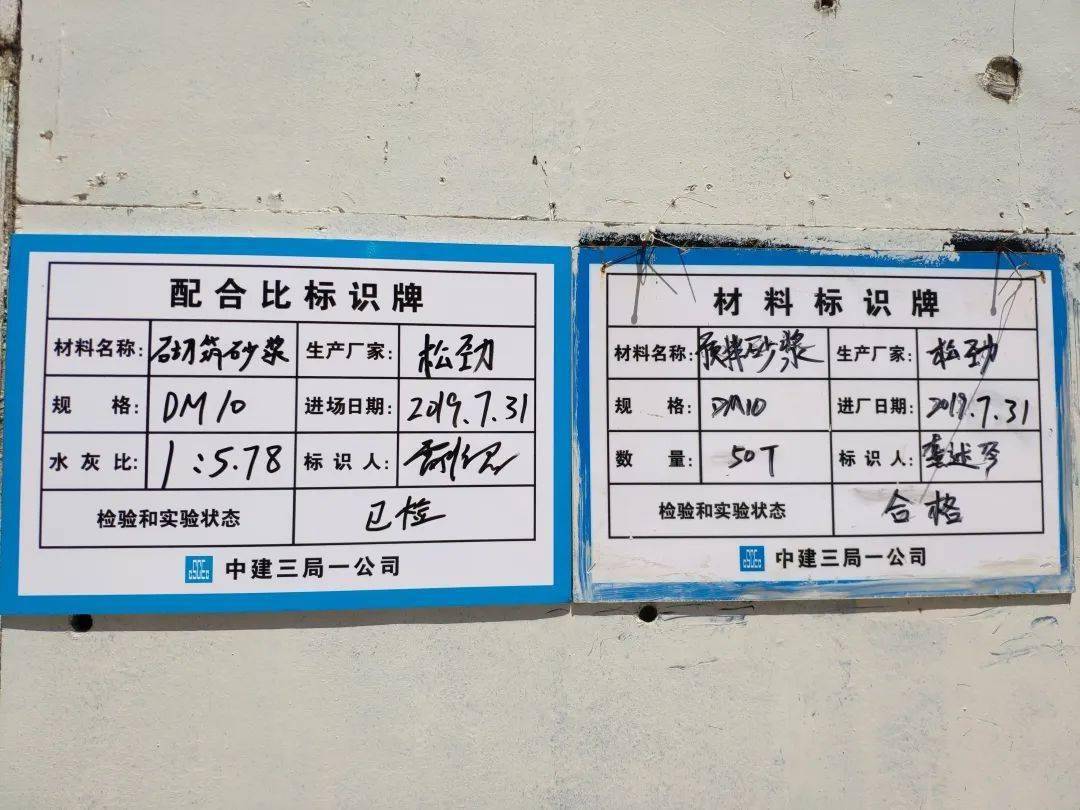 配合比标识牌
材料名称: 砌筑砂浆 生产厂家: 松劲
规 格: DM10 进场日期: 2019.7.31
水灰比: 1:5.78 标识人:
检验和实验状态 已检
中建三局一公司
材料标识牌
材料名称: 预拌砂浆 生产厂家: 松劲
规 格: DM10 进厂日期: 2019.7.31
数 量: 50T 标识人:
检验和实验状态 合格
中建三局一公司